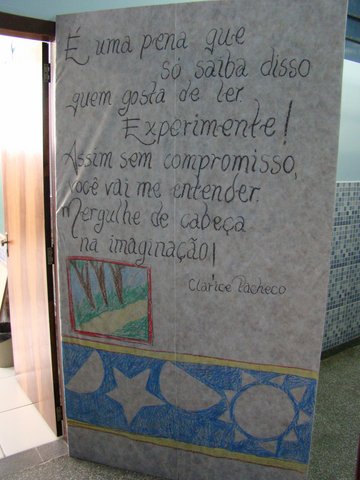 É uma pena que
só saiba disso
quem gosta de ler.
Experimente!
Assim sem compromisso,
você vai me entender.
Mergulhe de cabeça
na imaginação!
Clarice Pacheco